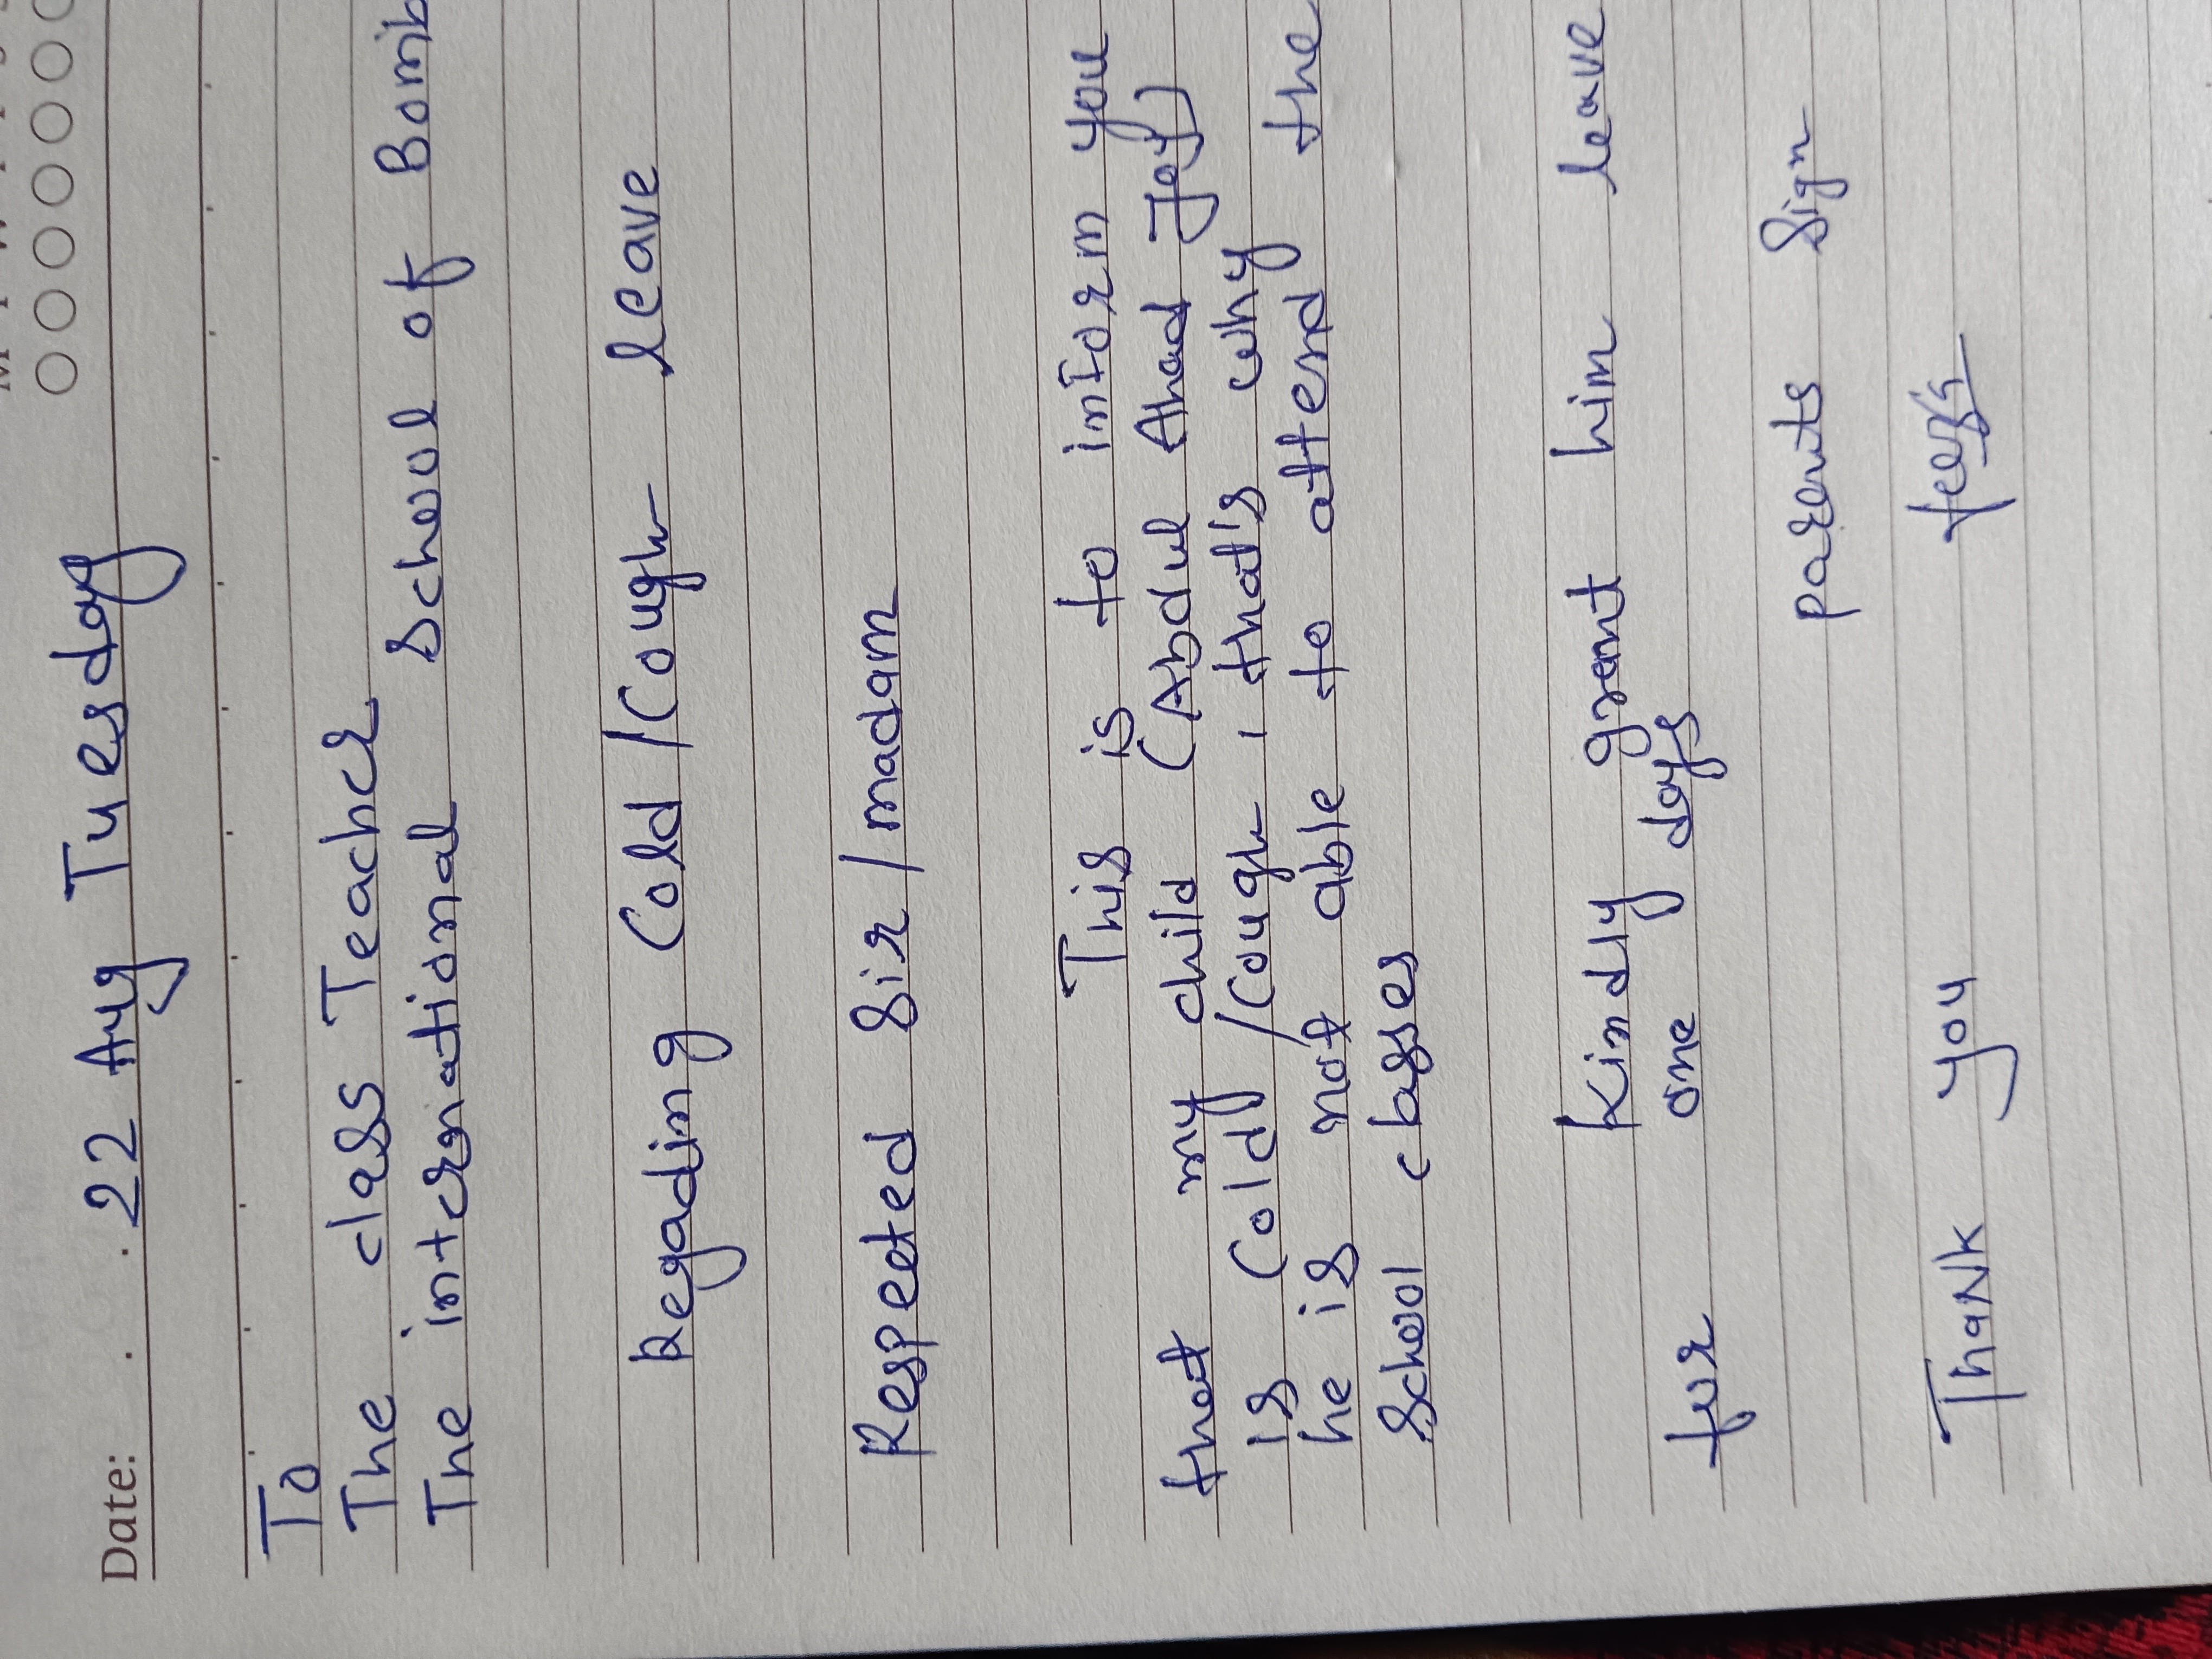 Date: 22 Aug Tuesday
To
The class Teacher
The international School of Bomb
Regading Cold/Cough leave
Respected Sir/madam
This is to inform you
that my child (Abdul Ahad Joy)
is Cold/Cough, that's why
he is not able to attend the
School classes
Kindly grant him leave
for one days
parents Sign
Thank you